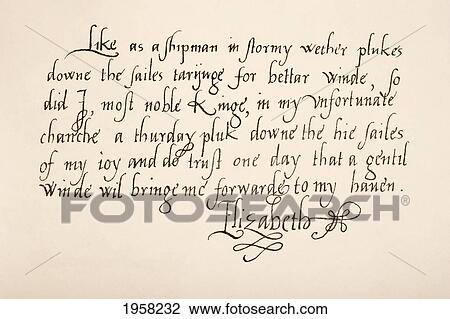 Like as a shipman in stormy wether plukes
downe the sailes tarijnge for bettar winde, so
did I, most noble Kinge, in my vnfortunate
chanche a thurday pluk downe the hie sailes
of my ioy and do trust one day that a gentil
Winde wil bringe me forwarde to my hauen.
FOTOSEARCH®
Elizabeth
1958232 www.fotosearch.com